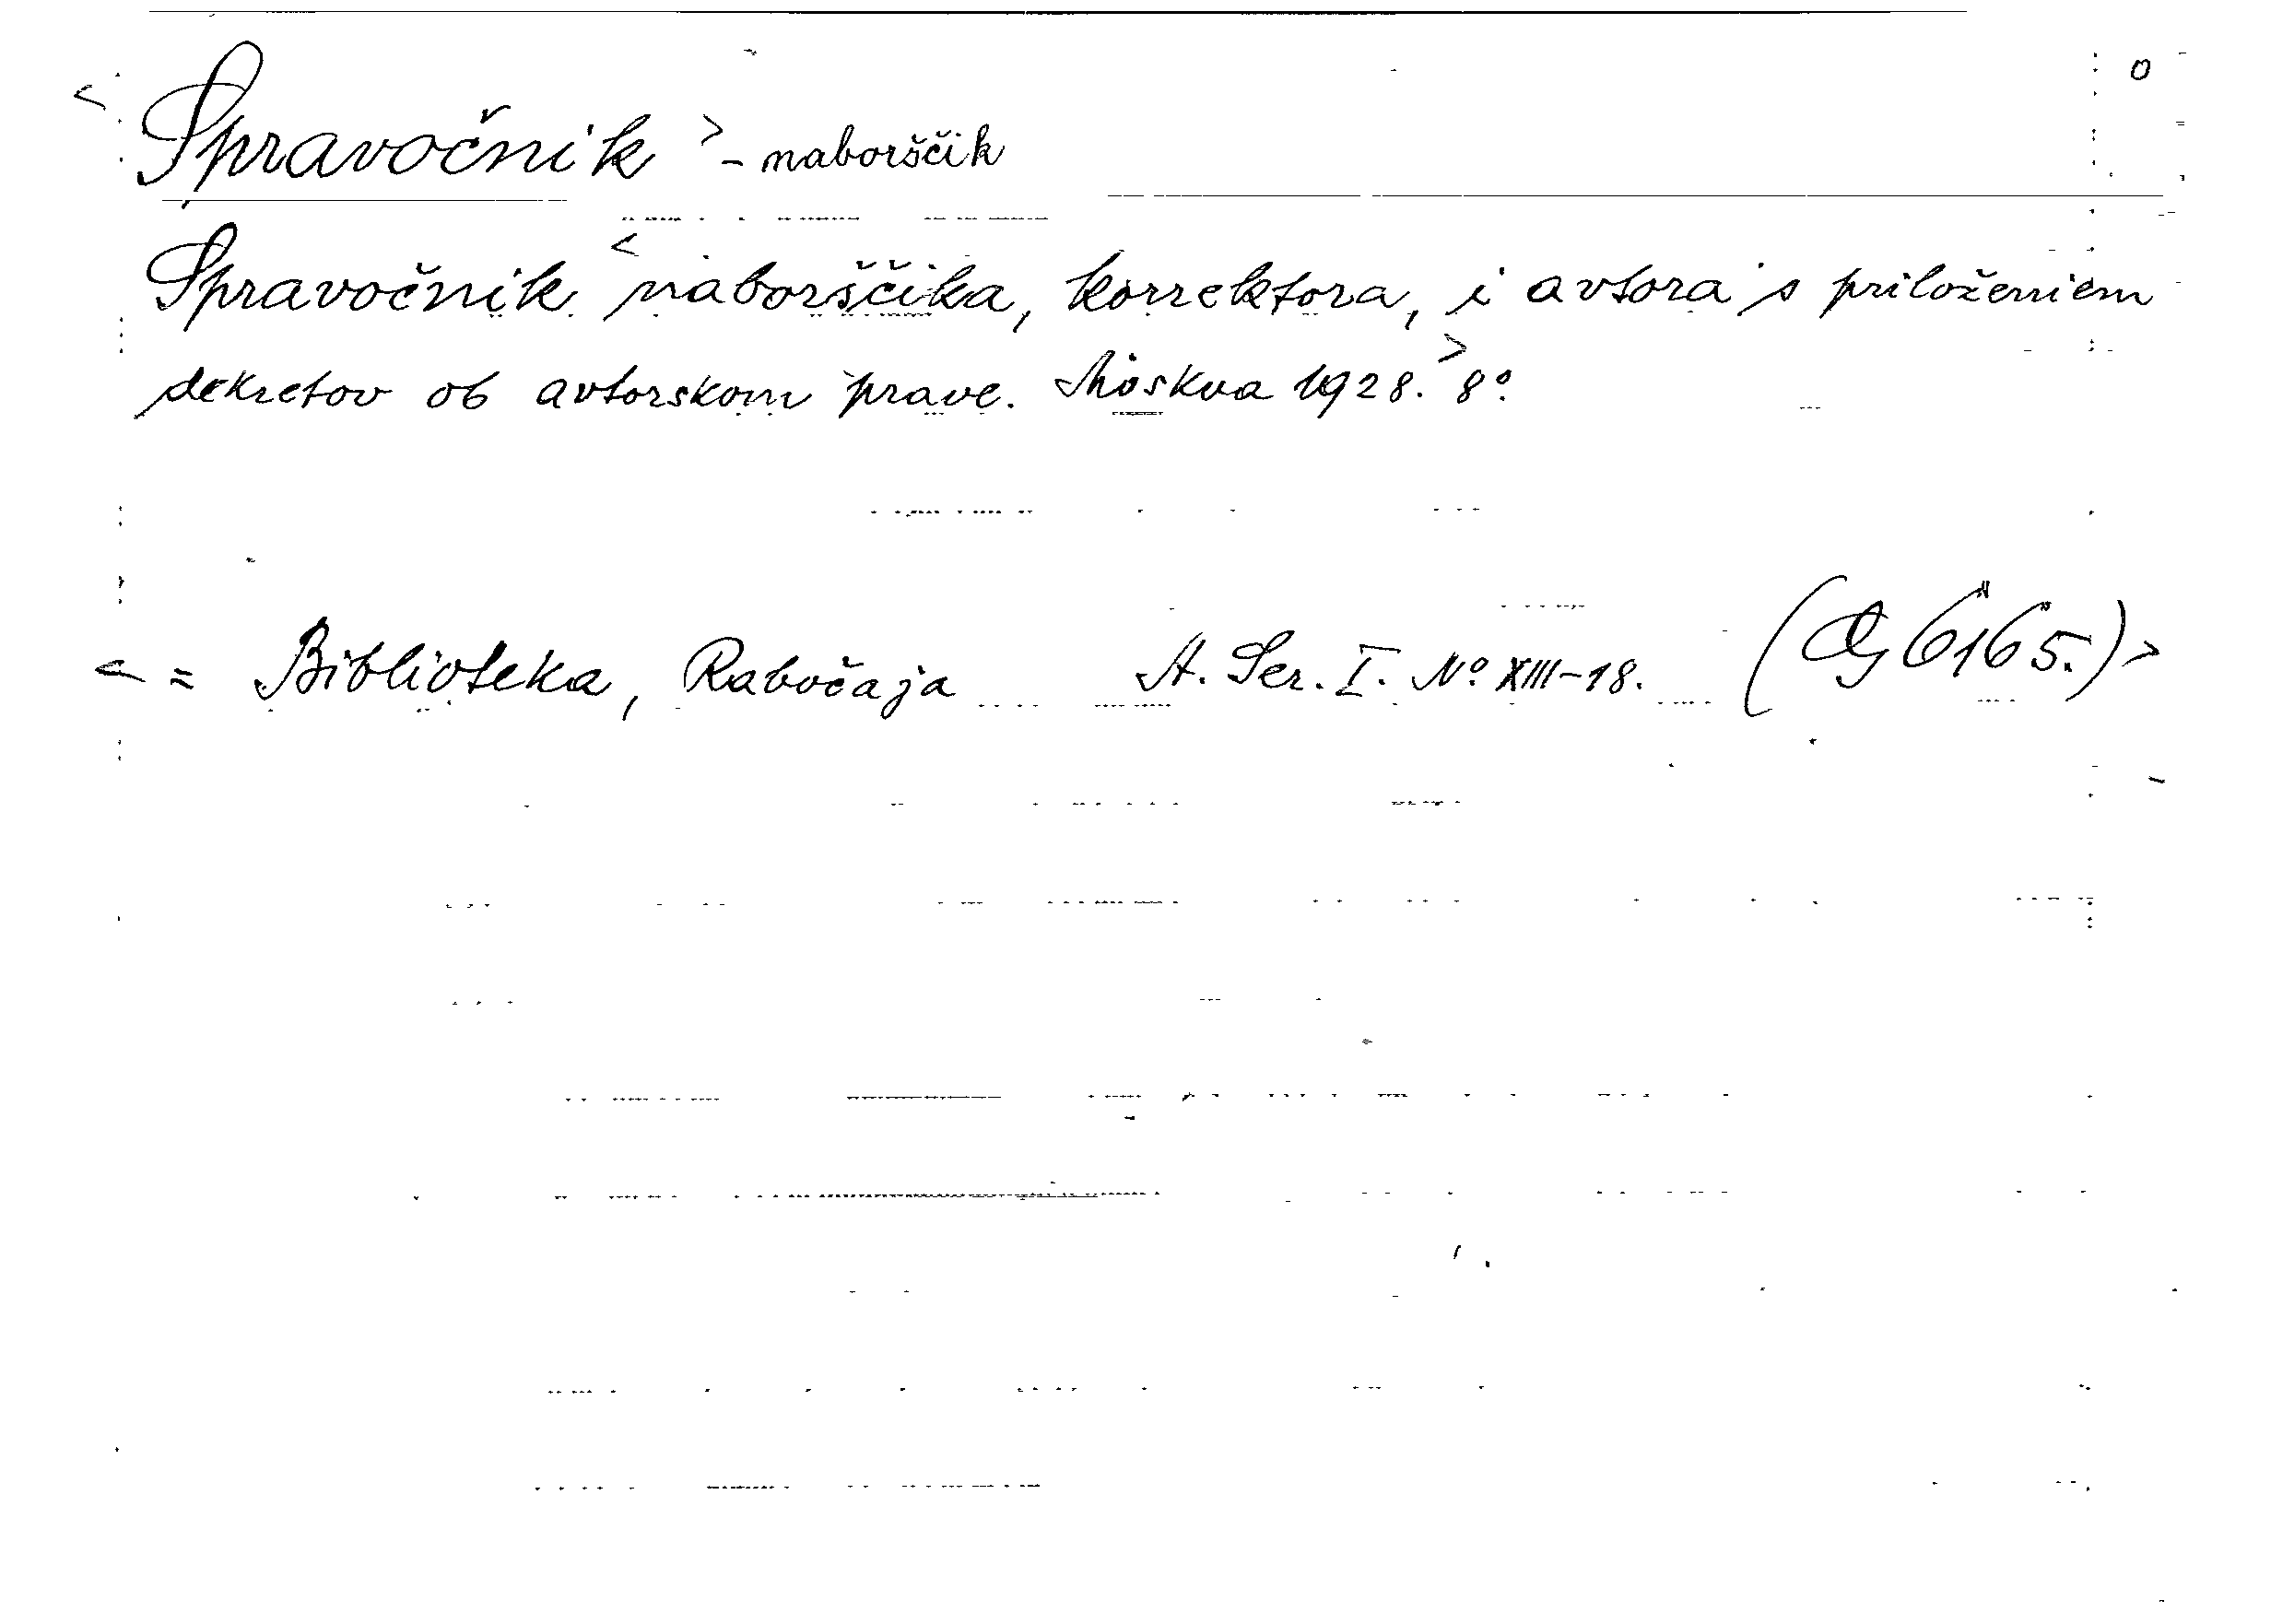 < Spravočnik > - naborščik 0
Spravočnik < naborščika, korrektora, i avtora s priloženiem
dekretov ob avtorskom prave. Moskva 1928. > 8º
< = Biblioteka, Rabočaja A. Ser. I. Nº XIII-18. (Og 6165.) >